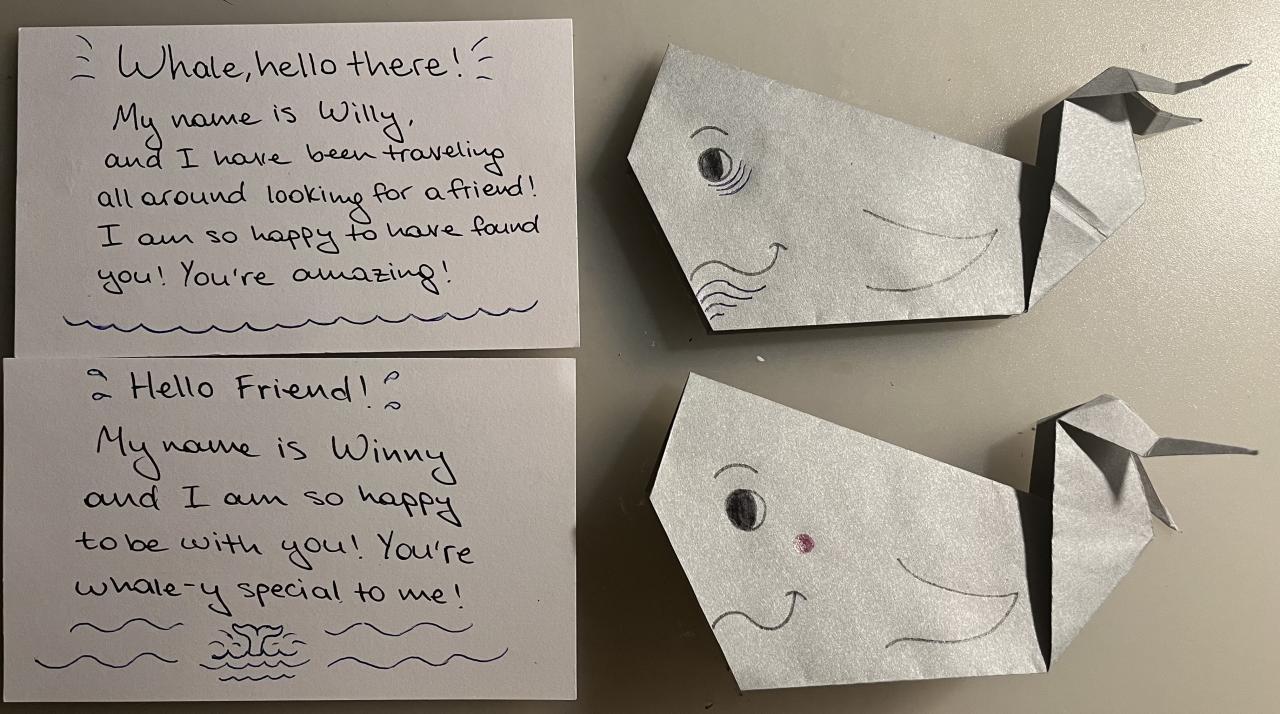 Whale, hello there!
My name is Willy,
and I have been traveling
all around looking for a friend!
I am so happy to have found
you! You're amazing!
Hello Friend!
My name is Winny
and I am so happy
to be with you! You're
whale-y special to me!